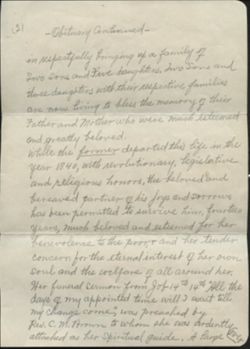 (2)
—Obituary Continued—
in respectfully bringing up a family of
Two Sons and Five daughters, Two Sons and
three daughters with their respective families
are now living to bless the memory of their
Father and Mother who were much esteemed
and greatly beloved.
While the former departed this life in the
year 1840, with revolutionary, legislative
and religious honors, the beloved and
bereaved partner of his joys and sorrows
has been permitted to survive him, fourteen
years, much beloved and esteemed for her
benevolence to the poor, and her tender
concern for the eternal interest of her own
soul and the welfare of all around her.
Her funeral sermon from Job 14th 14th "All the
days of my appointed time will I wait till
my change come, was preached by
Rev. C. M. Brown to whom she was ardently
attached as her Spiritual guide. A large